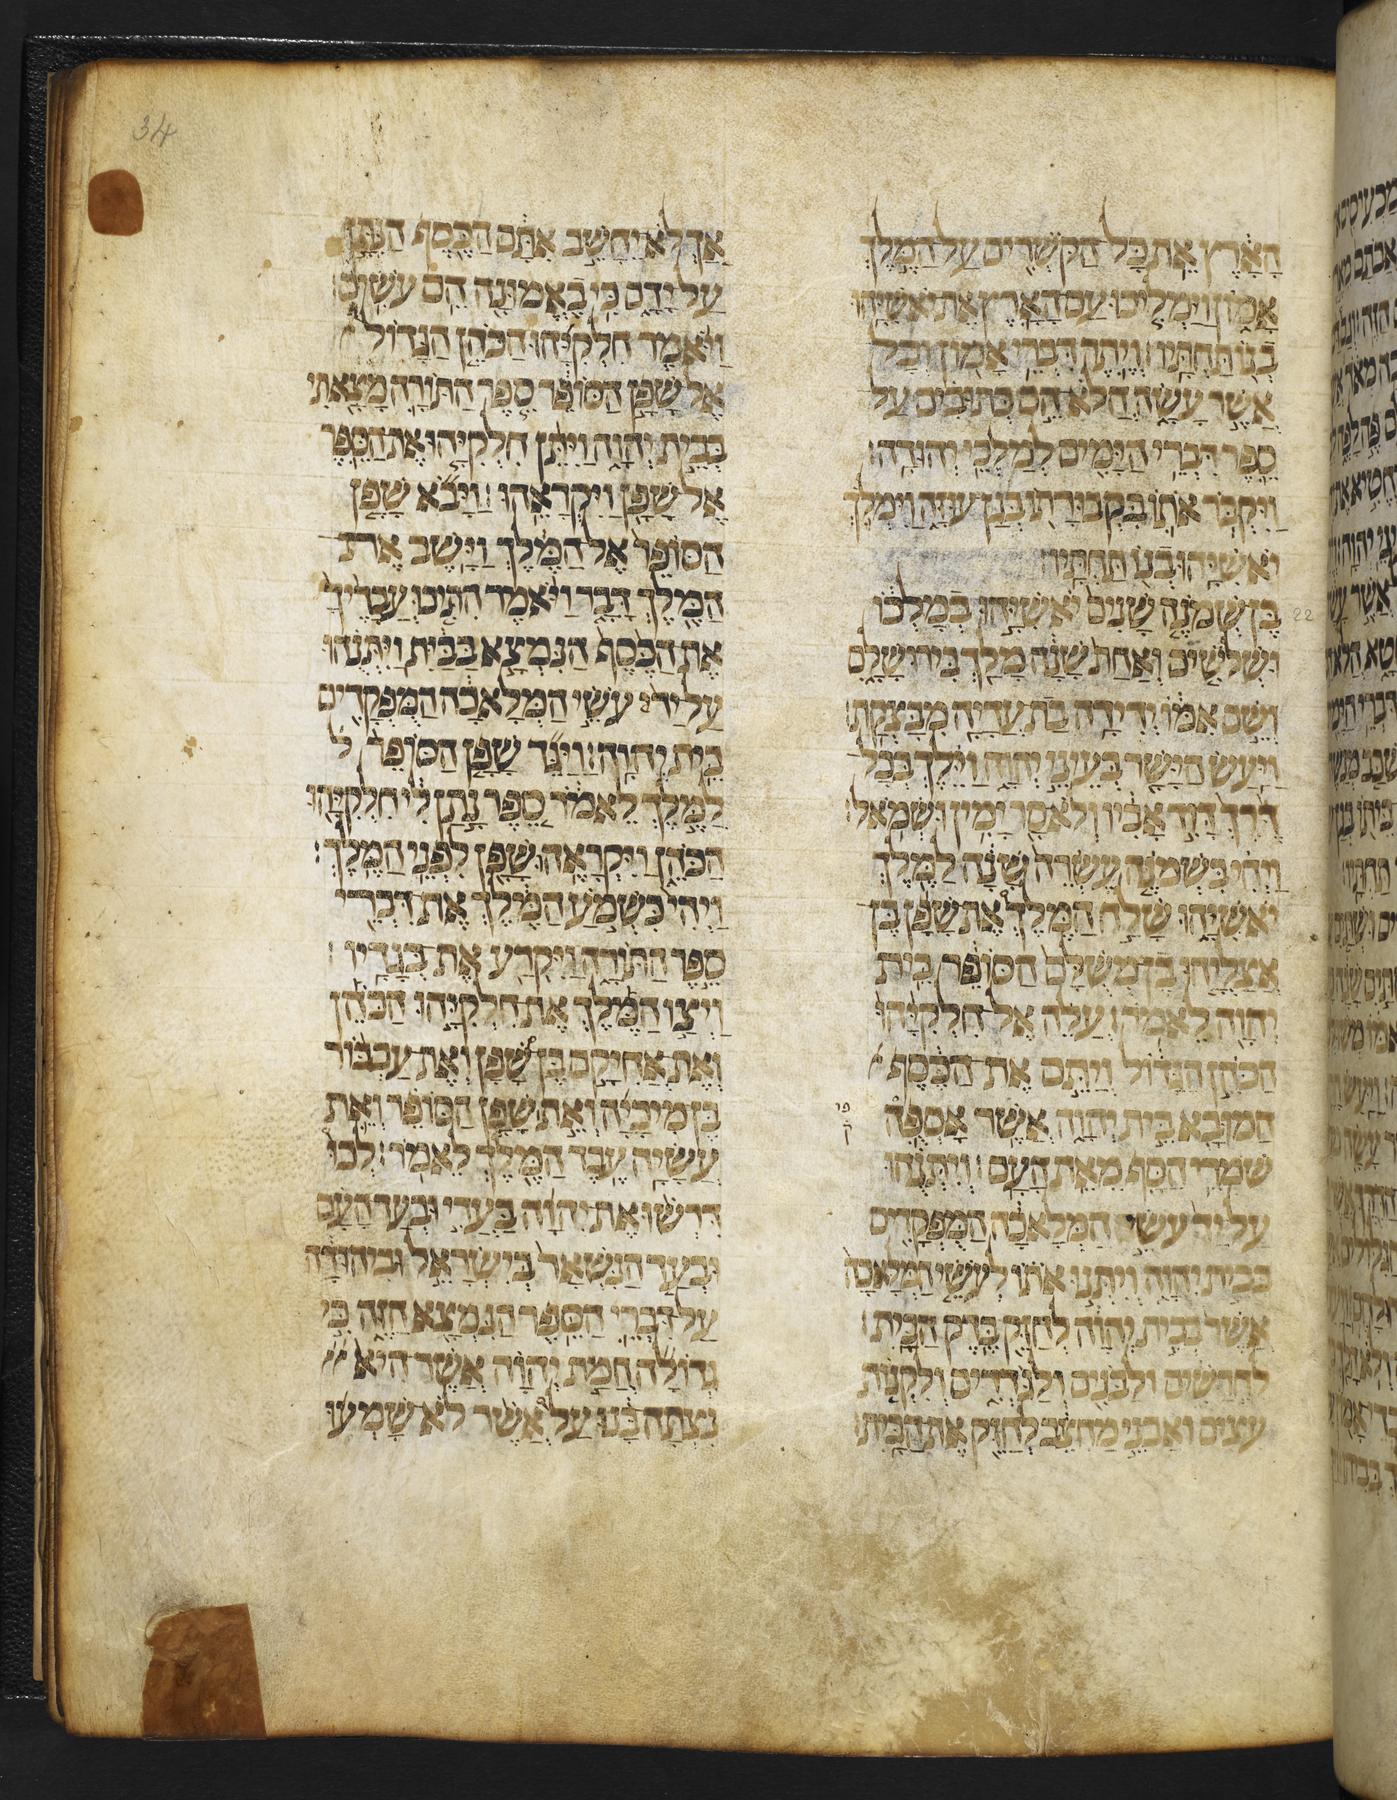 34
הָאָרֶץ אֵת כָּל הַקֹּשְׁרִים עַל הַמֶּלֶךְ
אָמוֹן וַיַּמְלִיכוּ עַם הָאָרֶץ אֶת יֹאשִׁיָּהוּ
בְנוֹ תַּחְתָּיו׃ וְיֶתֶר דִּבְרֵי אָמוֹן וְכָל
אֲשֶׁר עָשָׂה הֲלֹא הֵם כְּתוּבִים עַל
סֵפֶר דִּבְרֵי הַיָּמִים לְמַלְכֵי יְהוּדָה׃
וַיִּקְבֹּר אֹתוֹ בִּקְבוּרָתוֹ בְּגַן עֻזָּה וַיִּמְלֹךְ
יֹאשִׁיָּהוּ בְנוֹ תַּחְתָּיו׃
22
בֶּן שְׁמֹנֶה שָׁנִים יֹאשִׁיָּהוּ בְמָלְכוֹ
וּשְׁלֹשִׁים וְאַחַת שָׁנָה מָלַךְ בִּירוּשָׁלִָם
וְשֵׁם אִמּוֹ יְדִידָה בַת עֲדָיָה מִבָּצְקַת׃
וַיַּעַשׂ הַיָּשָׁר בְּעֵינֵי יְהוָה וַיֵּלֶךְ בְּכָל
דֶּרֶךְ דָּוִד אָבִיו וְלֹא סָר יָמִין וּשְׂמֹאל׃
וַיְהִי בִּשְׁמֹנֶה עֶשְׂרֵה שָׁנָה לַמֶּלֶךְ
יֹאשִׁיָּהוּ שָׁלַח הַמֶּלֶךְ אֶת שָׁפָן בֶּן
אֲצַלְיָהוּ בֶן מְשֻׁלָּם הַסּוֹפֵר בֵּית
יְהוָה לֵאמֹר׃ עֲלֵה אֶל חִלְקִיָּהוּ
הַכֹּהֵן הַגָּדוֹל וְיַתֵּם אֶת הַכֶּסֶף
הַמּוּבָא בֵּית יְהוָה אֲשֶׁר אָסְפֻה
שֹׁמְרֵי הַסַּף מֵאֵת הָעָם׃ וְיִתְּנֻהוּ
עַל יַד עֹשֵׂי הַמְּלָאכָה הַמֻּפְקָדִים
בְּבֵית יְהוָה וְיִתְּנוּ אֹתוֹ לְעֹשֵׂי הַמְּלָאכָה
אֲשֶׁר בְּבֵית יְהוָה לְחַזֵּק בֶּדֶק הַבָּיִת׃
לֶחָרָשִׁים וְלַבֹּנִים וְלַגֹּדְרִים וְלִקְנוֹת
עֵצִים וְאַבְנֵי מַחְצֵב לְחַזֵּק אֶת הַבָּיִת׃
אַךְ לֹא יֵחָשֵׁב אִתָּם הַכֶּסֶף הַנִּתָּן
עַל יָדָם כִּי בֶאֱמוּנָה הֵם עֹשִׂים׃
וַיֹּאמֶר חִלְקִיָּהוּ הַכֹּהֵן הַגָּדוֹל
אֶל שָׁפָן הַסּוֹפֵר סֵפֶר הַתּוֹרָה מָצָאתִי
בְּבֵית יְהוָה וַיִּתֵּן חִלְקִיָּהוּ אֶת הַסֵּפֶר
אֶל שָׁפָן וַיִּקְרָאֵהוּ׃ וַיָּבֹא שָׁפָן
הַסּוֹפֵר אֶל הַמֶּלֶךְ וַיָּשֶׁב אֶת
הַמֶּלֶךְ דָּבָר וַיֹּאמֶר הִתִּיכוּ עֲבָדֶיךָ
אֶת הַכֶּסֶף הַנִּמְצָא בַבַּיִת וַיִּתְּנֻהוּ
עַל יַד עֹשֵׂי הַמְּלָאכָה הַמֻּפְקָדִים
בֵּית יְהוָה׃ וַיַּגֵּד שָׁפָן הַסּוֹפֵר ל
לַמֶּלֶךְ לֵאמֹר סֵפֶר נָתַן לִי חִלְקִיָּהוּ
הַכֹּהֵן וַיִּקְרָאֵהוּ שָׁפָן לִפְנֵי הַמֶּלֶךְ׃
וַיְהִי כִּשְׁמֹעַ הַמֶּלֶךְ אֶת דִּבְרֵי
סֵפֶר הַתּוֹרָה וַיִּקְרַע אֶת בְּגָדָיו׃
וַיְצַו הַמֶּלֶךְ אֶת חִלְקִיָּהוּ הַכֹּהֵן
וְאֶת אֲחִיקָם בֶּן שָׁפָן וְאֶת עַכְבּוֹר
בֶּן מִיכָיָה וְאֵת שָׁפָן הַסּוֹפֵר וְאֵת
עֲשָׂיָה עֶבֶד הַמֶּלֶךְ לֵאמֹר׃ לְכוּ
דִרְשׁוּ אֶת יְהוָה בַּעֲדִי וּבְעַד הָעָם
וּבְעַד הַנִּשְׁאָר בְּיִשְׂרָאֵל וּבִיהוּדָה
עַל דִּבְרֵי הַסֵּפֶר הַנִּמְצָא הַזֶּה כִּי
גְדוֹלָה חֲמַת יְהוָה אֲשֶׁר הִיא
נִצְּתָה בָנוּ עַל אֲשֶׁר לֹא שָׁמְעוּ